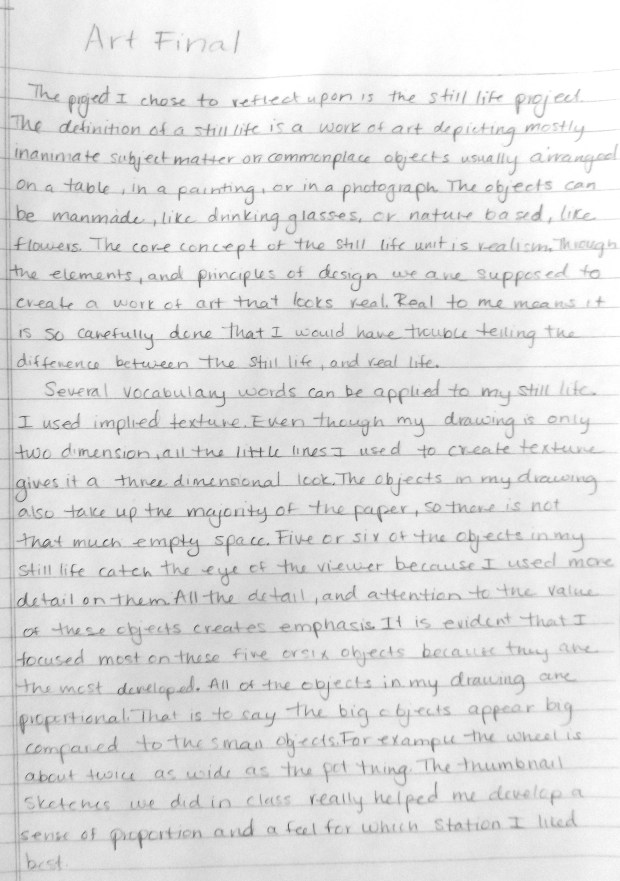 Art Final
The project I chose to reflect upon is the still life project.
The definition of a still life is a work of art depicting mostly
inanimate subject matter or commonplace objects usually arranged
on a table, in a painting, or in a photograph. The objects can
be manmade, like drinking glasses, or nature based, like
flowers. The core concept of the still life unit is realism. Through
the elements, and principles of design we are supposed to
create a work of art that looks real. Real to me means it
is so carefully done that I would have trouble telling the
difference between the still life, and real life.
Several vocabulary words can be applied to my still life.
I used implied texture. Even though my drawing is only
two dimension, all the little lines I used to create texture
gives it a three dimensional look. The objects in my drawing
also take up the majority of the paper, so there is not
that much empty space. Five or six of the objects in my
still life catch the eye of the viewer because I used more
detail on them. All the detail, and attention to the value
of these objects creates emphasis. It is evident that I
focused most on these five or six objects because they are
the most developed. All of the objects in my drawing are
proportional. That is to say the big objects appear big
compared to the small objects. For example the wheel is
about twice as wide as the pot thing. The thumbnail
sketches we did in class really helped me develop a
sense of proportion and a feel for which station I liked
best.